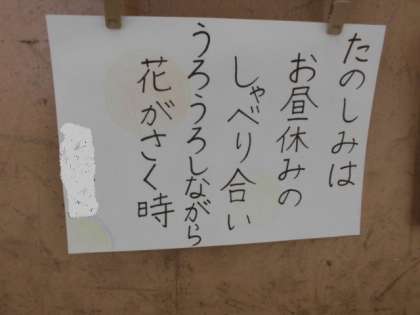 たのしみは
お昼休みの
しゃべり合い
うろうろしながら
花がさく時